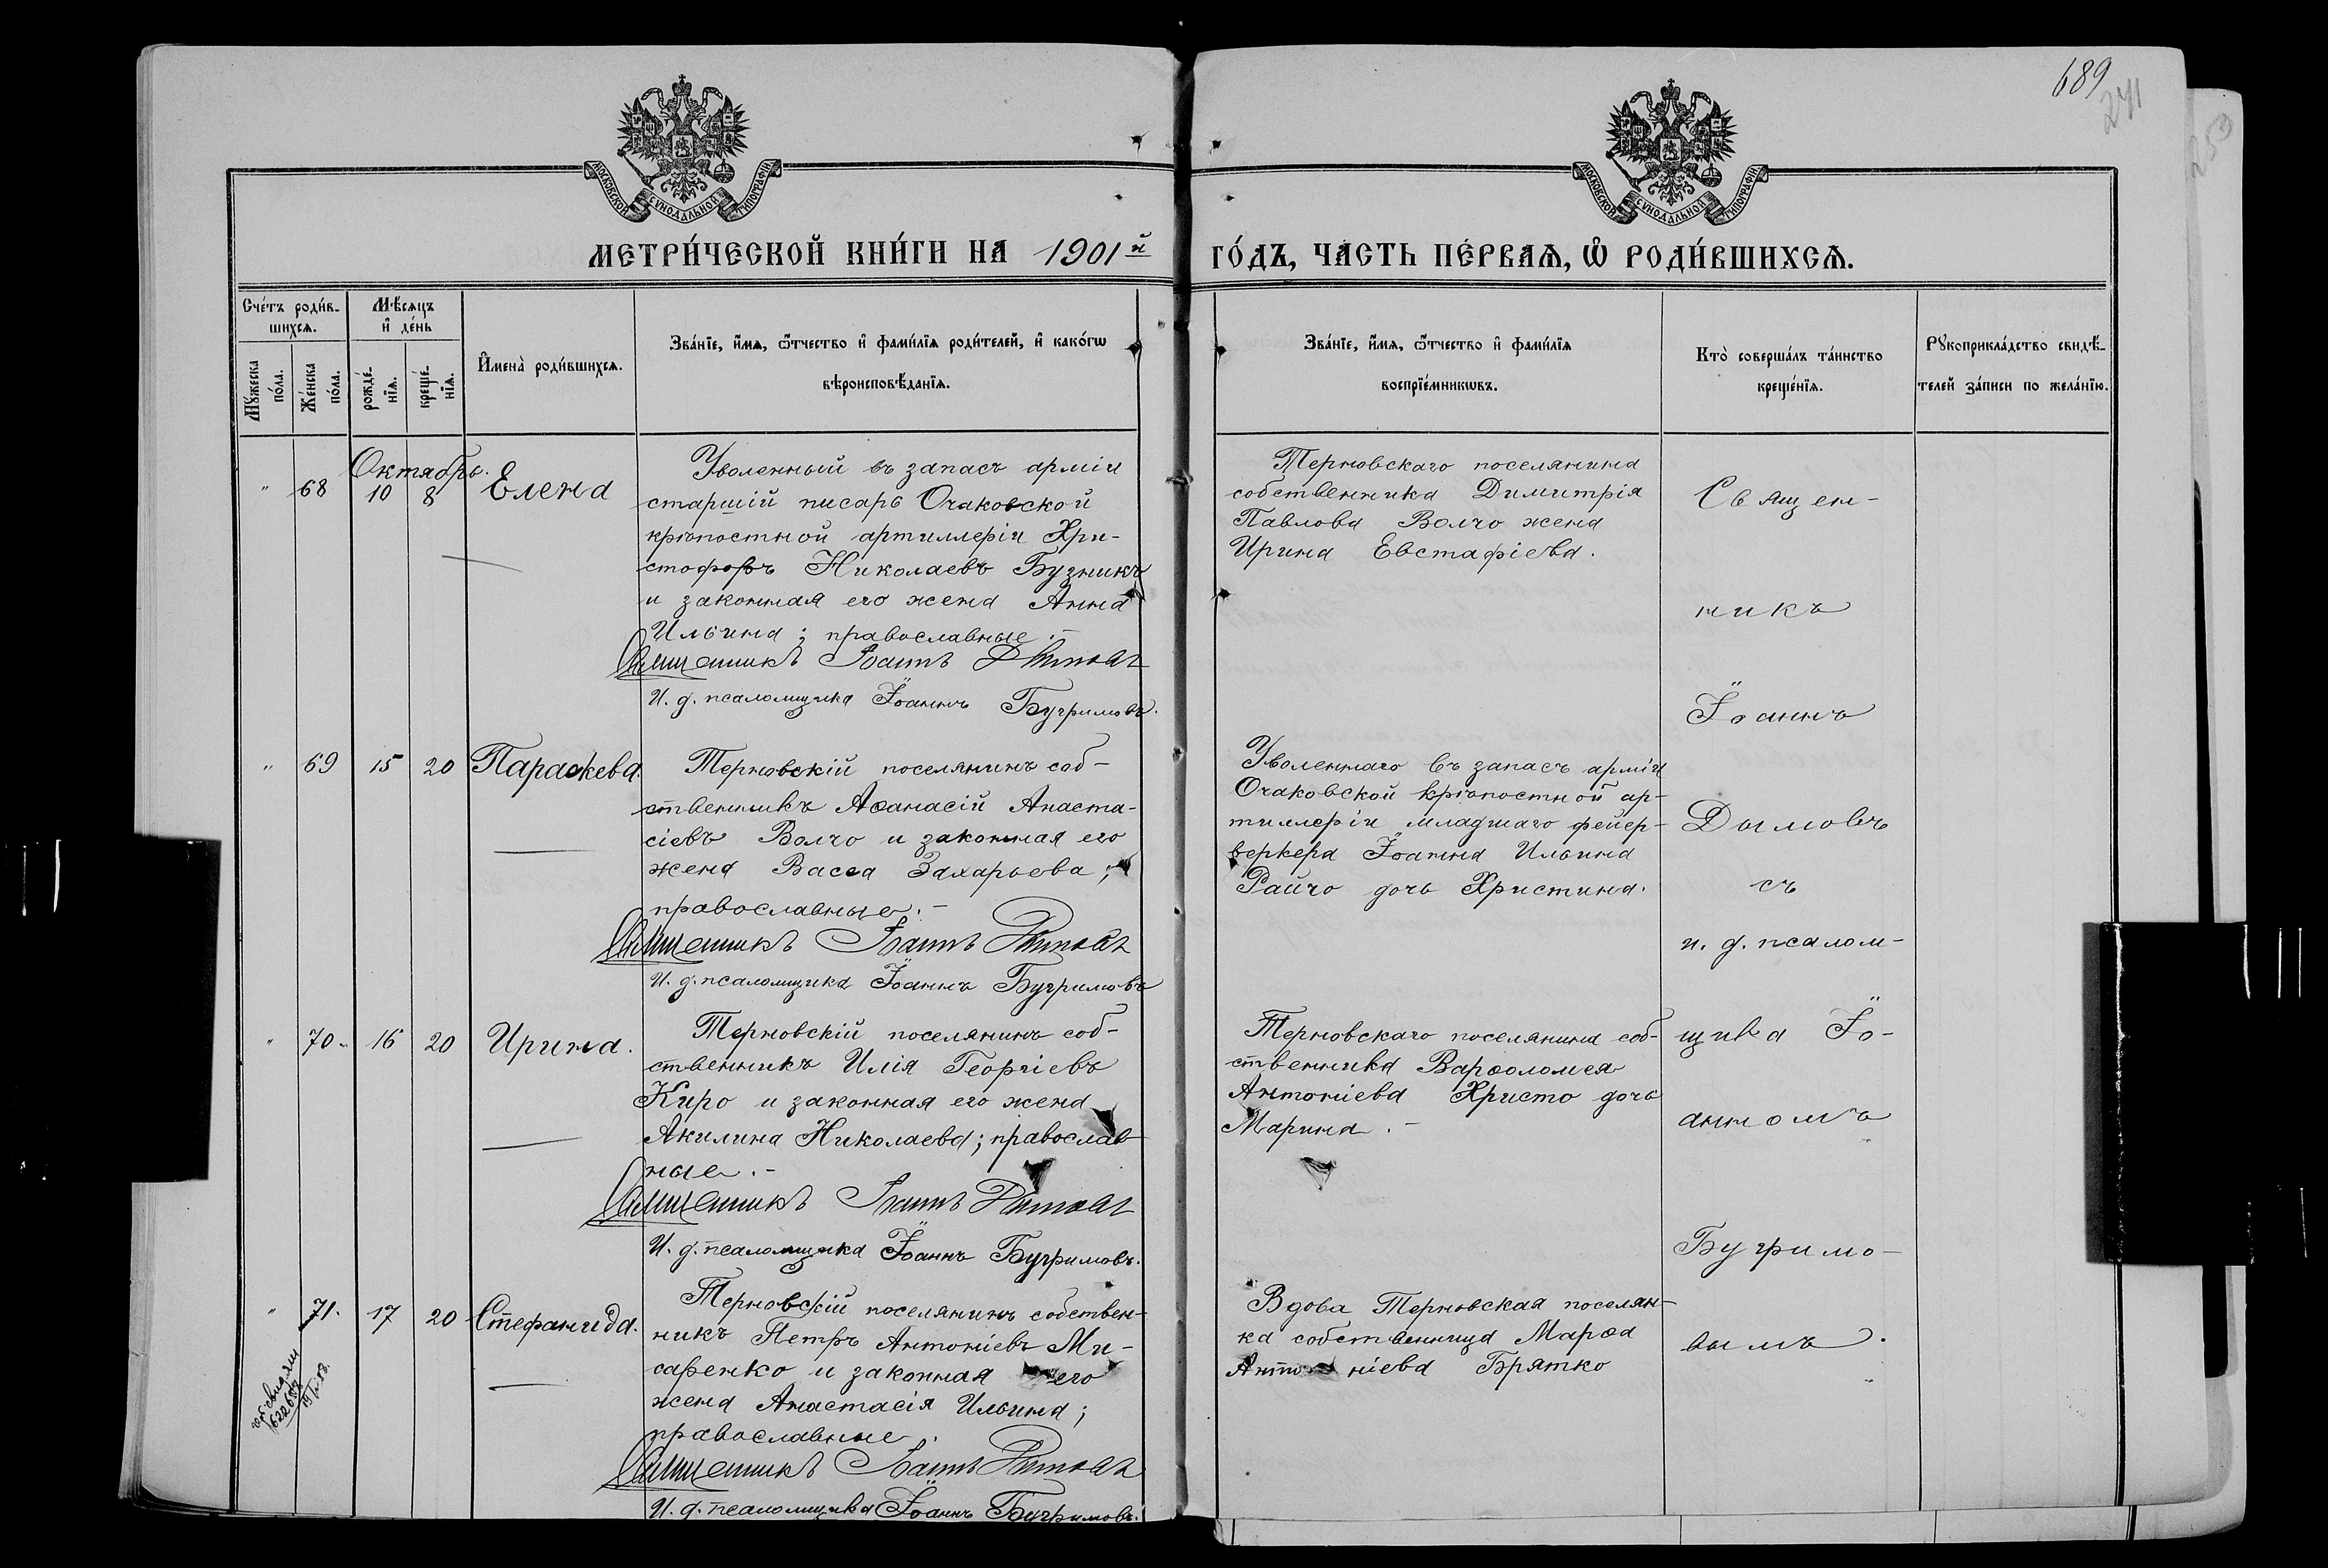 689
241
250
МОСКОВСКОЙ СѴНОДАЛЬНОЙ ТИПОГРАФІИ
МОСКОВСКОЙ СѴНОДАЛЬНОЙ ТИПОГРАФІИ
МЕТРИ́ЧЕСКОЙ КНИ́ГИ НА 1901й
ГО́ДЪ, ЧА́СТЬ ПЕ́РВАѦ, Ѽ РОДИ́ВШИХСѦ.
Сче́тъ роди́в-
шихсѧ.
Мꙋ́жеска по́ла.
Же́нска по́ла.
Мѣ́сѧцъ
и҆ де́нь
рожде́-
нїѧ.
креще́-
нїѧ.
И҆мена̀ роди́вшихсѧ.
Зва́нїе, и҆́мѧ, ѻ҆́тчество и҆ фами́лїѧ роди́телей, и҆ како́гѡ
вѣроисповѣ́данїѧ.
Зва́нїе, и҆́мѧ, ѻ҆́тчество и҆ фами́лїѧ
воспрїе́мникѡвъ.
Кто̀ соверша́лъ та́инство
креще́нїѧ.
Рꙋкоприкла́дство свидѣ́-
телей за́писи по жела́нїю.
Октябрь.
" 68 10 8 Елена
Уволенный въ запасъ арміи
старшій писарь Очаковской
крѣпостной артиллеріи Хри-
стофоръ Николаевъ Бузникъ
и законная его жена Анна
Ильина; православные.-
Священникъ Іоаннъ Дымовъ
И. д. псаломщика Іоаннъ Бугримовъ.
Терновскаго поселянина
собственника Димитрія
Павлова Волчо жена
Ирина Евстафіева.
" 69 15 20 Параскева.
Терновскій поселянинъ соб-
ственникъ Аѳанасій Анаста-
сіевъ Волчо и законная его
жена Васса Захарьева;
православные.-
Священникъ Іоаннъ Дымовъ
И. д. псаломщика Іоаннъ Бугримовъ
Уволеннаго въ запасъ арміи
Очаковской крѣпостной ар-
тиллеріи младшаго фейер-
веркера Іоанна Ильина
Райчо дочь Христина.
" 70. 16 20 Ирина.
Терновскій поселянинъ соб-
ственникъ Илія Георгіевъ
Киро и законная его жена
Акилина Николаева; православ-
ные.-
Священникъ Іоаннъ Дымовъ
И. д. псаломщика Іоаннъ Бугримовъ.
Терновскаго поселянина соб-
ственника Варѳоломея
Антоніева Христо дочь
Марина.-
" 71. 17 20 Стефанида.
Терновскій поселянинъ собствен-
никъ Петръ Антоніевъ Ми-
саренко и законная его
жена Анастасія Ильина;
православные.
Священникъ Іоаннъ Дымовъ
И. д. псаломщика Іоаннъ Бугримовъ.
Вдова Терновская поселян-
ка собственница Марѳа
Антоніева Брятко
Священ-
никъ
Іоаннъ
Дымовъ
съ
и. д. псалом-
щика Іо-
анномъ
Бугримо-
вымъ.